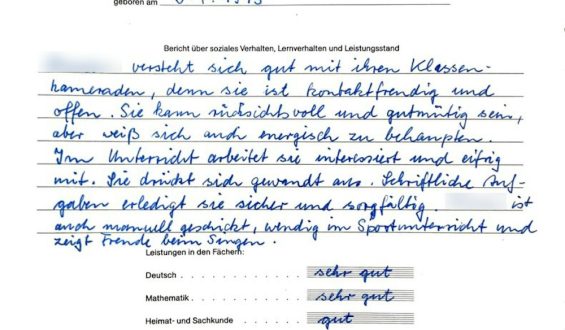 geboren am
Bericht über soziales Verhalten, Lernverhalten und Leistungsstand
versteht sich gut mit ihren Klassen-
kameraden, denn sie ist kontaktfreudig und
offen. Sie kann rücksichtsvoll und gutmütig sein,
aber weiß sich auch energisch zu behaupten.
Im Unterricht arbeitet sie interessiert und eifrig
mit. Sie drückt sich gewandt aus. Schriftliche Auf-
gaben erledigt sie sicher und sorgfältig. ist
auch manuell geschickt, wendig im Sportunterricht und
zeigt Freude beim Singen.
Leistungen in den Fächern:
Deutsch . . . . . . . sehr gut
Mathematik . . . . . . sehr gut
Heimat- und Sachkunde . gut